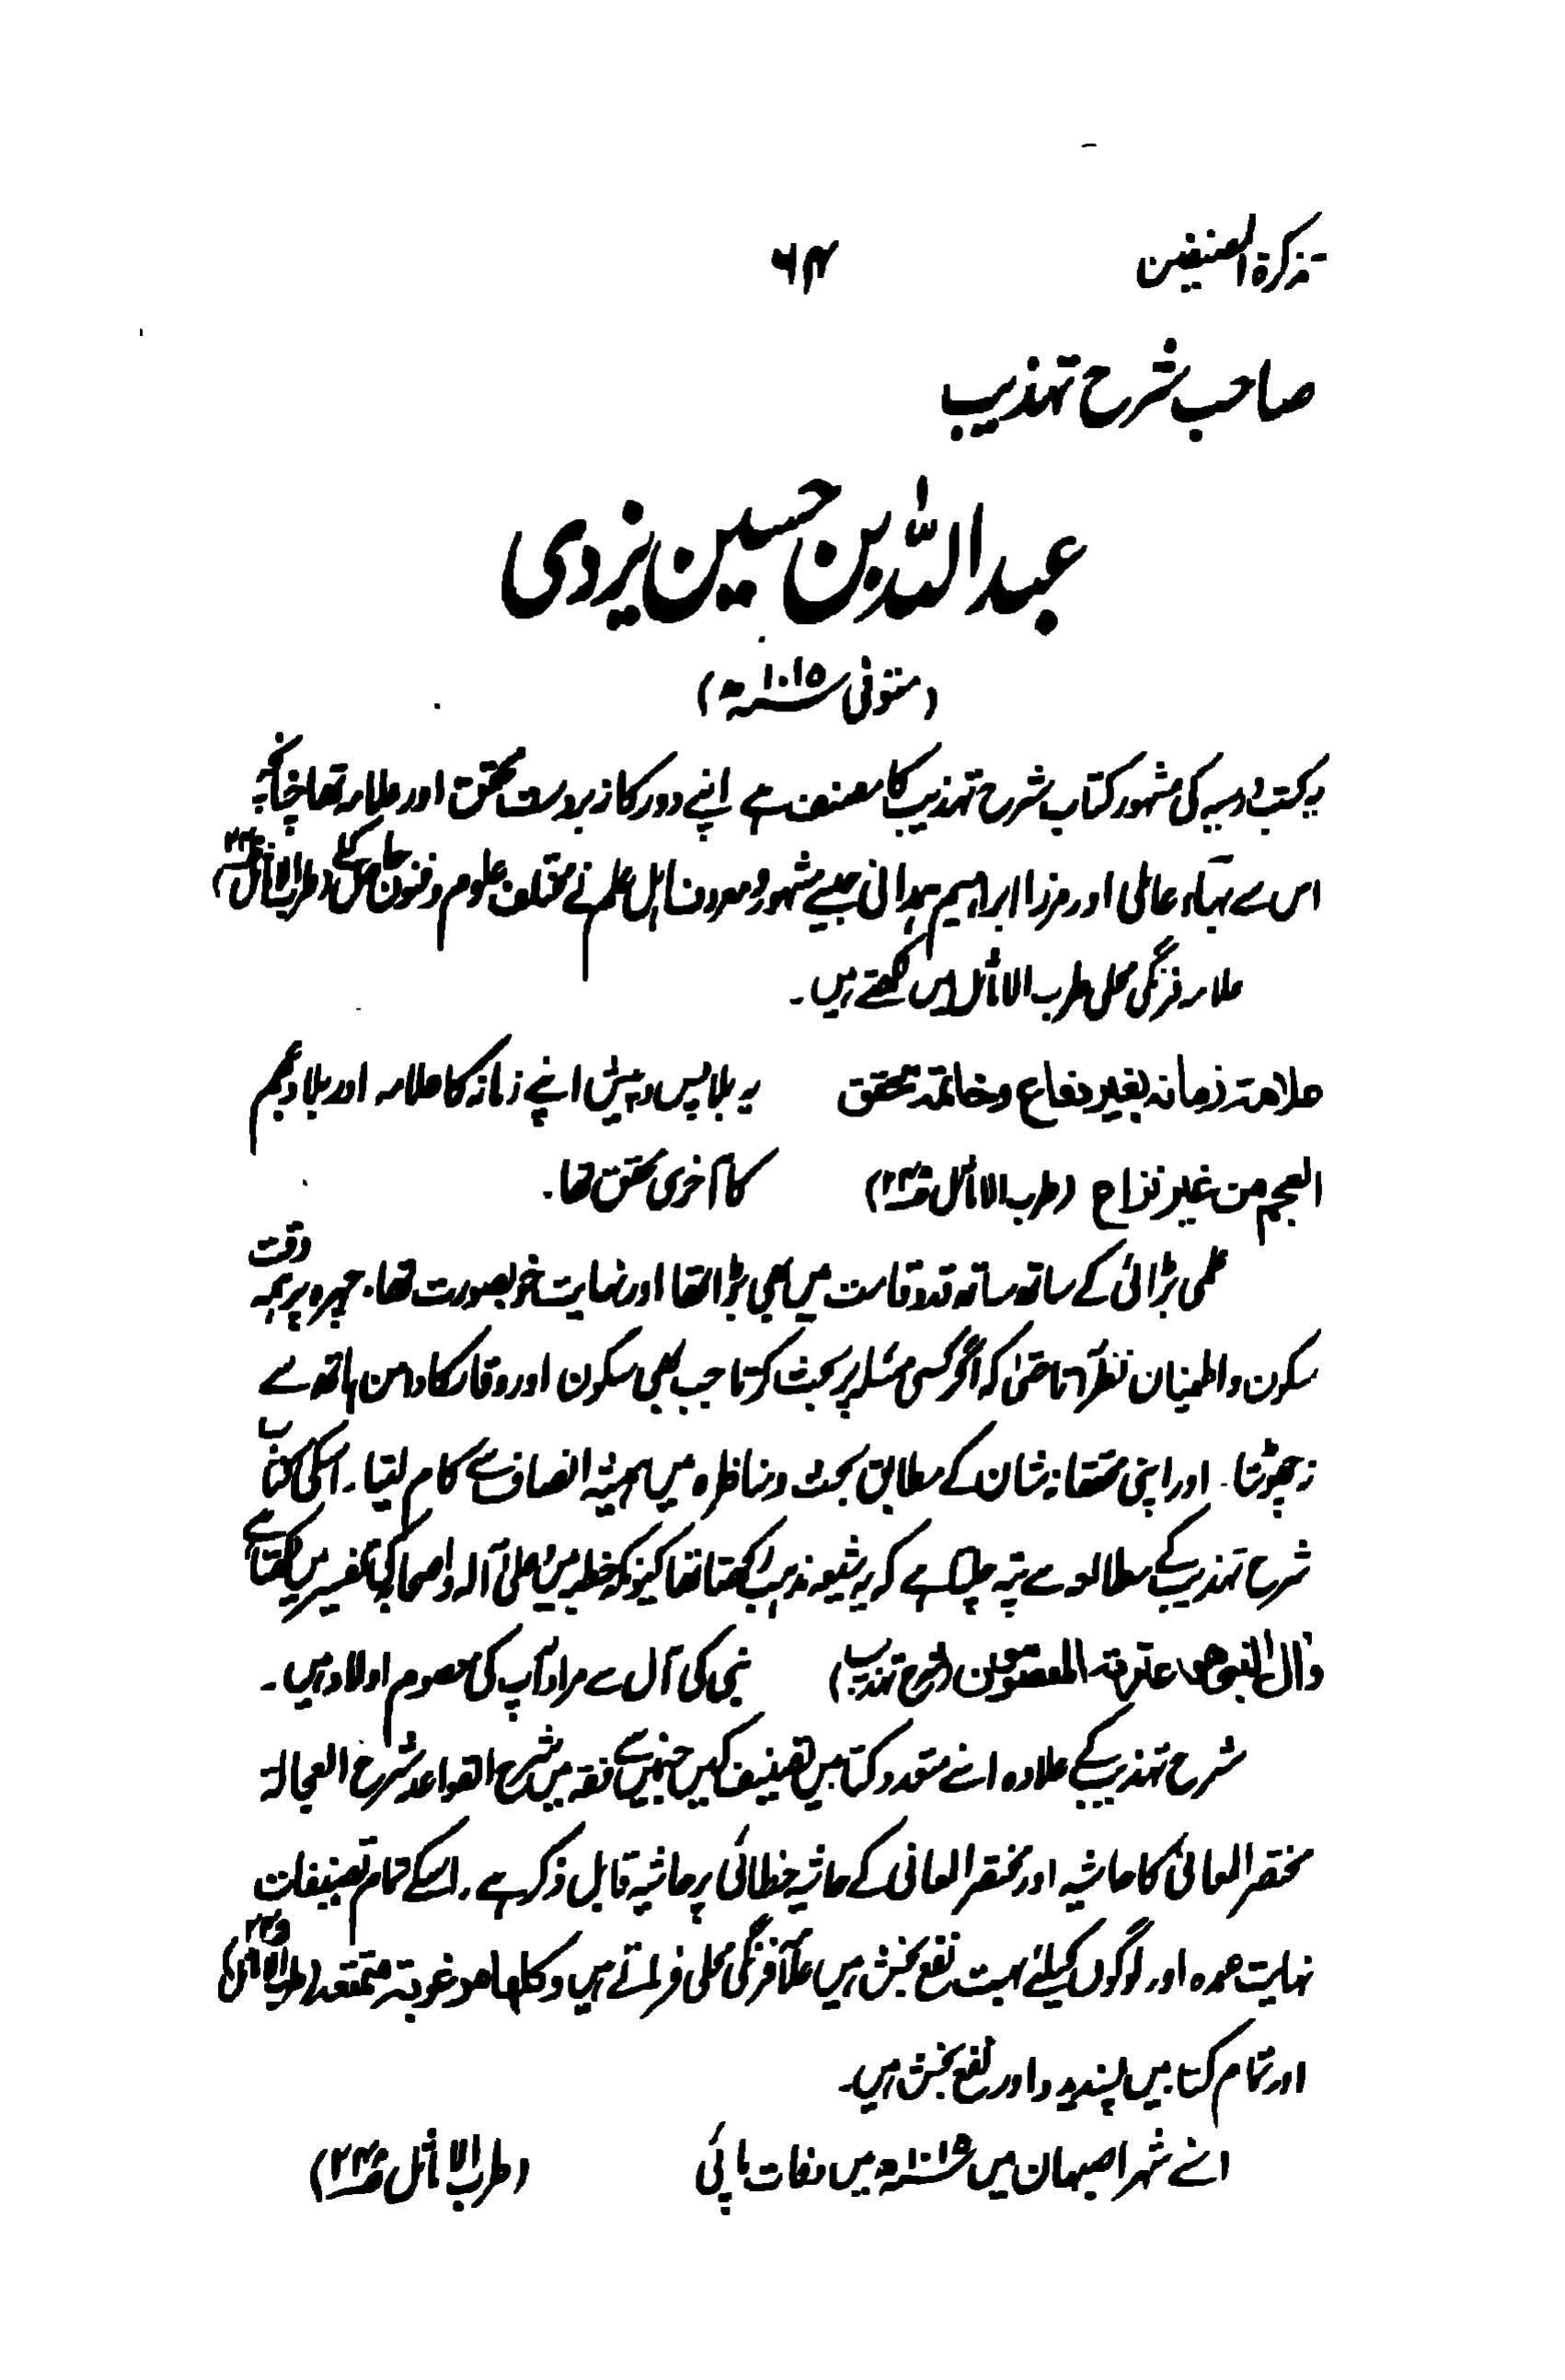 تذکرۃ المصنفین ۶۴
صاحب شرح تہذیب
عبداللہ بن حسین یزدی
(متوفی ۱۰۱۵ھ)
یہ کتب درسیہ کی مشہور کتاب شرح تہذیب کا مصنف ہے اپنے دور کا زبردست محقق اور علامہ تھا چنانچہ
اس سے بہاء عاملی اور مرزا ابراہیم ہمدانی جیسے مشہور و معروف اہل علم نے مختلف علوم و فنون حاصل کئے (طرب الاماثل ص۲۴۲)
علامہ فرنگی محلی طرب الاماثل میں لکھتے ہیں۔
علامتہ زمانہ بغیر دفاع وخاتمۃ محقق یہ بلا پس و پیش اپنے زمانہ کا علامہ اور بلاد عجم
العجم من غیر نزاع (طرب الاماثل ص۲۴۲) کا آخری محقق تھا۔
علمی بڑائی کے ساتھ ساتھ قدوقامت میں بھی بڑا تھا اور نہایت خوبصورت تھا۔ چہرہ پر ہمہ وقت
سکون و اطمینان نظر آتا حتیٰ کہ اگر کسی مسئلہ پر بحث کرتا جب بھی سکون اور وقار کا دامن ہاتھ سے
نہ چھوڑتا۔ اور اپنی محققانہ شان کے مطابق بحث و مناظرہ میں ہمیشہ انصاف سے کام لیتا۔ اسکی کتاب
شرح تہذیب کے مطالعہ سے پتہ چلتا ہے کہ یہ شیعہ مذہب رکھتا تھا کیونکہ خطبہ میں علیٰ آلہ واصحابہ کی تفسیر میں لکھتا ہے
وال النبی عترتہ المعصومین (شرح تہذیب) نبی کی آل سے مراد آپ کی معصوم اولاد ہیں۔
شرح تہذیب کے علاوہ اسنے متعدد کتابیں تصنیف کیں جنمیں سے فقہ میں شرح القواعد شرح العجالۃ
مختصر المعانی کا حاشیہ اور مختصر المعانی کے حاشیہ خطائی پر حاشیہ قابل ذکر ہے۔ اسکے تمام تصنیفات
نہایت عمدہ اور لوگوں کیلئے بہت نفع بخش ہیں علامہ فرنگی محلی فرماتے ہیں وکلہا مرغوبتہ (طرب الاماثل)
اور تمام کتابیں پسندیدہ اور نفع بخش ہیں۔
اسنے شہر اصبہان میں ۱۰۱۵ھ میں وفات پائی (طرب الاماثل ص۲۴۲)